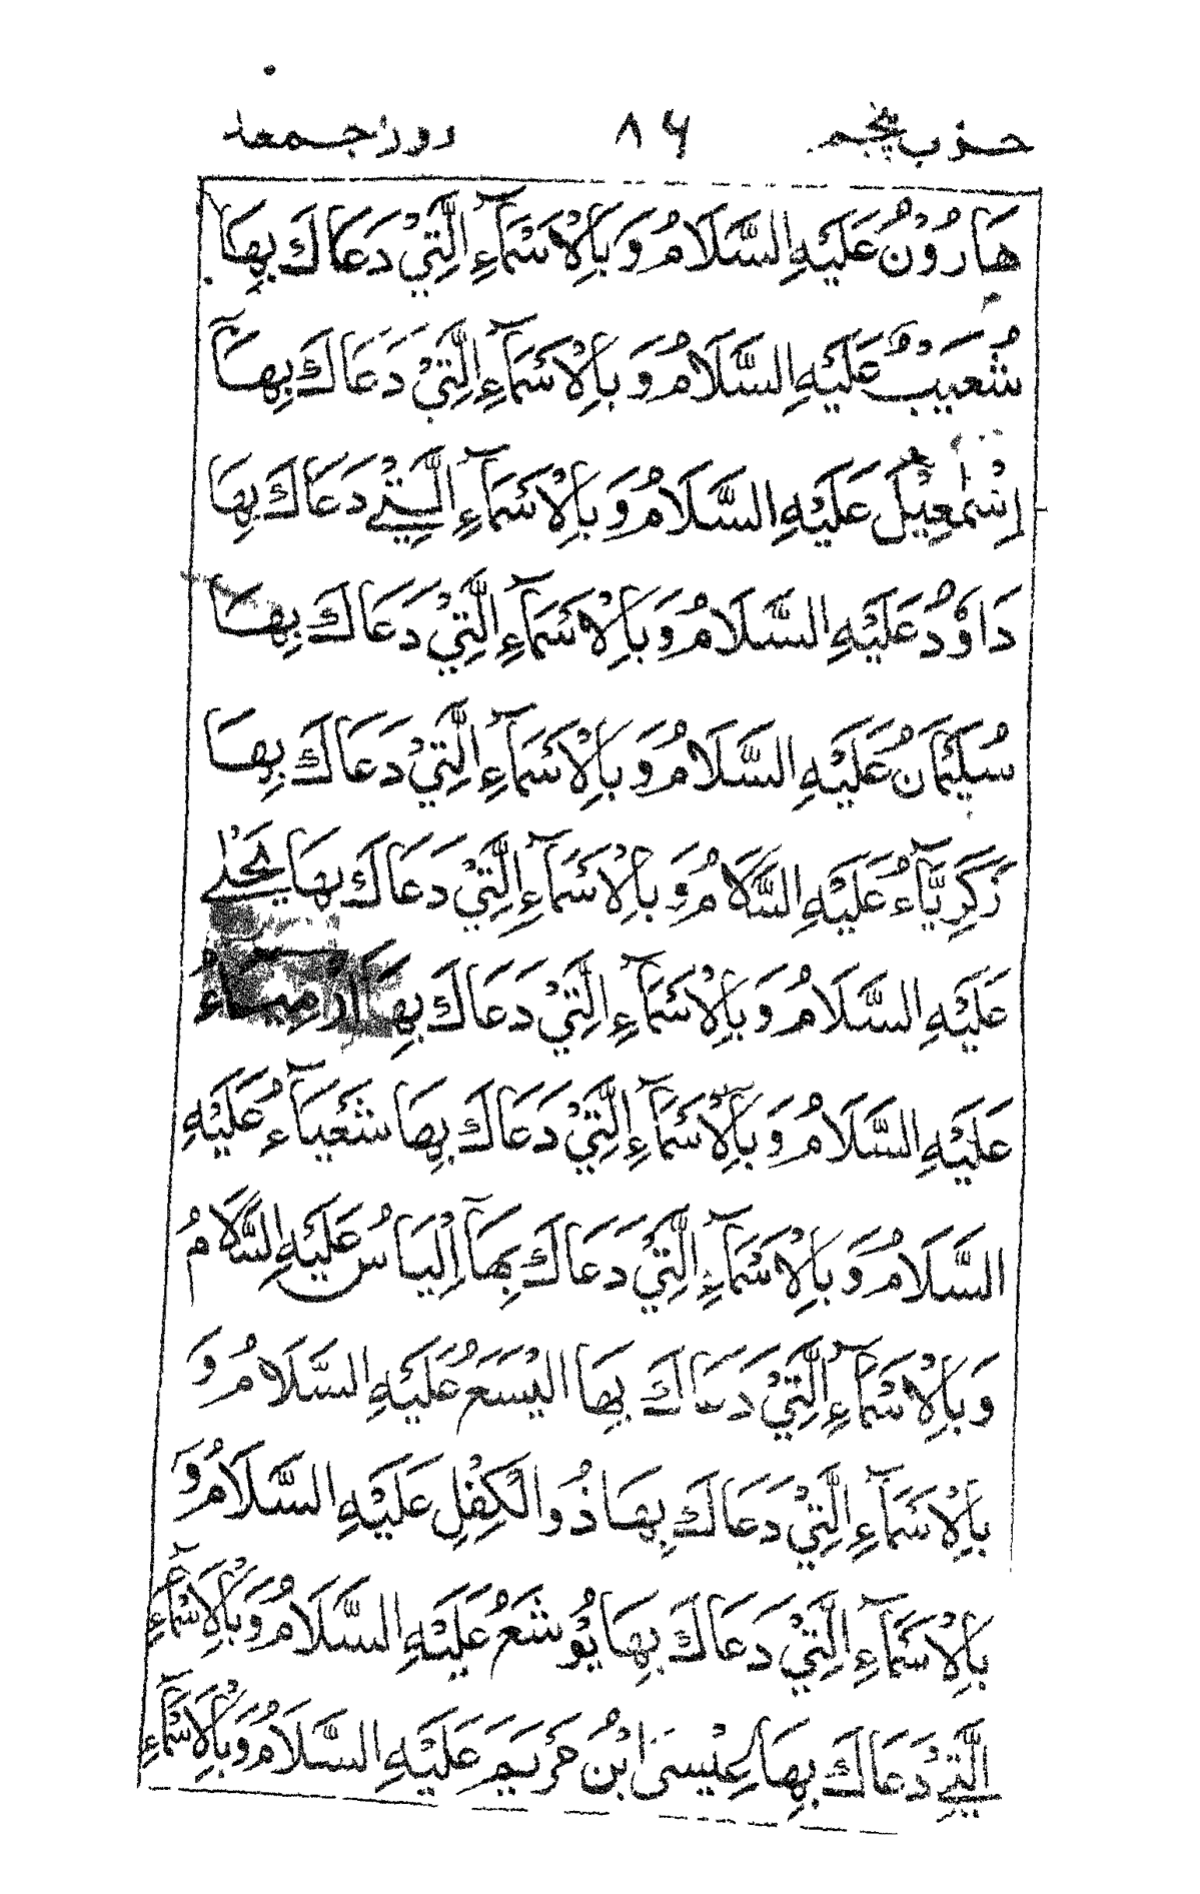 حزب پنجم ٨٦ روز جمعه
هَارُوْنُ عَلَيْهِ السَّلَامُ وَبِالْاَسْمَآءِ الَّتِيْ دَعَاكَ بِهَا
شُعَيْبٌ عَلَيْهِ السَّلَامُ وَبِالْاَسْمَآءِ الَّتِيْ دَعَاكَ بِهَآ
اِسْمٰعِيْلُ عَلَيْهِ السَّلَامُ وَبِالْاَسْمَآءِ الَّتِيْ دَعَاكَ بِهَا
دَاوٗدُ عَلَيْهِ السَّلَامُ وَبِالْاَسْمَآءِ الَّتِيْ دَعَاكَ بِهَا
سُلَيْمَانُ عَلَيْهِ السَّلَامُ وَبِالْاَسْمَآءِ الَّتِيْ دَعَاكَ بِهَا
زَكَرِيَّآءُ عَلَيْهِ السَّلَامُ وَبِالْاَسْمَآءِ الَّتِيْ دَعَاكَ بِهَا يَحْيٰى
عَلَيْهِ السَّلَامُ وَبِالْاَسْمَآءِ الَّتِيْ دَعَاكَ بِهَا اَرْمِيَاءُ
عَلَيْهِ السَّلَامُ وَبِالْاَسْمَآءِ الَّتِيْ دَعَاكَ بِهَا شَعْيَآءُ عَلَيْهِ
السَّلَامُ وَبِالْاَسْمَآءِ الَّتِيْ دَعَاكَ بِهَآ اِلْيَاسُ عَلَيْهِ السَّلَامُ
وَبِالْاَسْمَآءِ الَّتِيْ دَعَاكَ بِهَا الْيَسَعُ عَلَيْهِ السَّلَامُ وَ
بِالْاَسْمَآءِ الَّتِيْ دَعَاكَ بِهَا ذُوالْكِفْلِ عَلَيْهِ السَّلَامُ وَ
بِالْاَسْمَآءِ الَّتِيْ دَعَاكَ بِهَا يُوْشَعُ عَلَيْهِ السَّلَامُ وَبِالْاَسْمَآءِ
الَّتِيْ دَعَاكَ بِهَا عِيْسَى ابْنُ مَرْيَمَ عَلَيْهِ السَّلَامُ وَبِالْاَسْمَآءِ